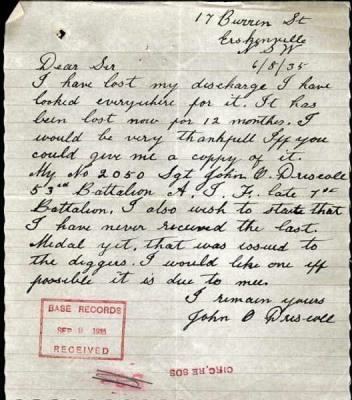 17 Burren St
Erskinville
N S W
6/8/35
Dear Sir
I have lost my discharge I have
looked everywhere for it. It has
been lost now for 12 monthes. I
would be very thankfull Iff you
could give me a coppy of it.
My No 2050 Sgt John O. Driscoll
53rd Battalion A. I. F. late 1st
Battalion. I also wish to state that
I have never received the last
Medal yet, that was issued to
the diggers. I would like one iff
possible it is due to mee.
I remain yours
John O Driscoll
BASE RECORDS
SEP 9 1935
RECEIVED
CIRC, RE SOS